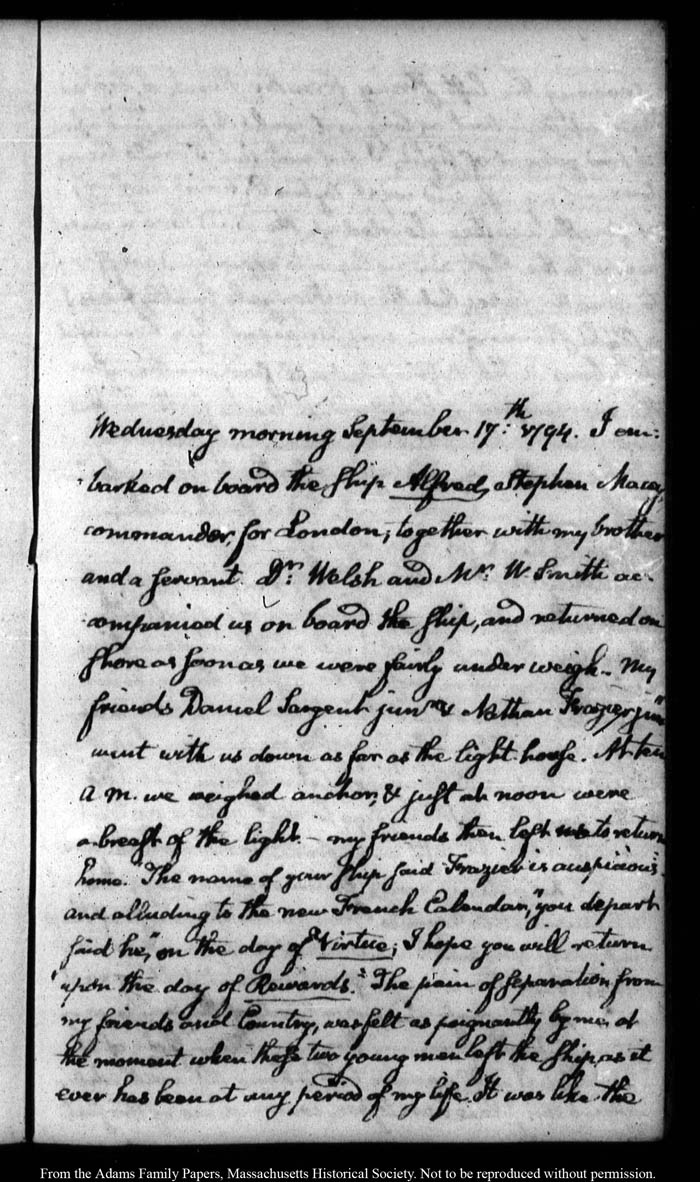 Wednesday morning September 17.th 1794. I em:
barked on board the ship Alfred, Stephen Macey,
commander, for London; together with my brother
and a servant. Dr: Welsh and Mr. W. Smith ac-
companied us on board the ship, and returned on
shore as soon as we were fairly under weigh. My
friends Daniel Sargent junr. & Nathan Frazier junr
went with us down as far as the light-house. At ten
A M. we weighed anchor, & just at noon were
a breast of the light. — my friends then left us to return
home. The name of your ship said Frazier is auspicious:
and alluding to the new French Calendar, "you depart
said he, "on the day of Virtue; I hope you will return
"upon the day of Rewards." The pain of separation from
my friends and Country, was felt as poignantly by me, at
the moment when these two young men left the ship, as it
ever has been at any period of my life. It was like the
From the Adams Family Papers, Massachusetts Historical Society. Not to be reproduced without permission.